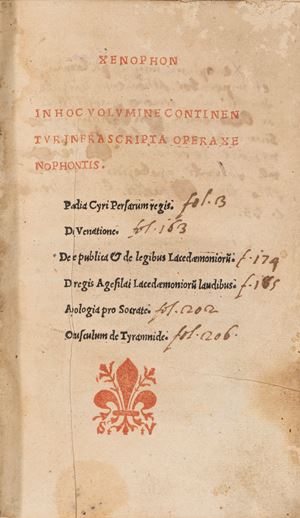 XENOPHON
IN HOC VOLVMINE CONTINEN
TVR INFRASCRIPTA OPERA XE
NOPHONTIS.
Pædia Cyri Persarum regis. fol. 3
D Venatione. fol. 163
De e publica & de legibus Lacedæmoniorū. f. 174
D regis Agesilai Lacedæmoniorū laudibus. f. 185
Apologia pro Socrate. fol. 202
Ousculum de Tyrannide. fol. 206.